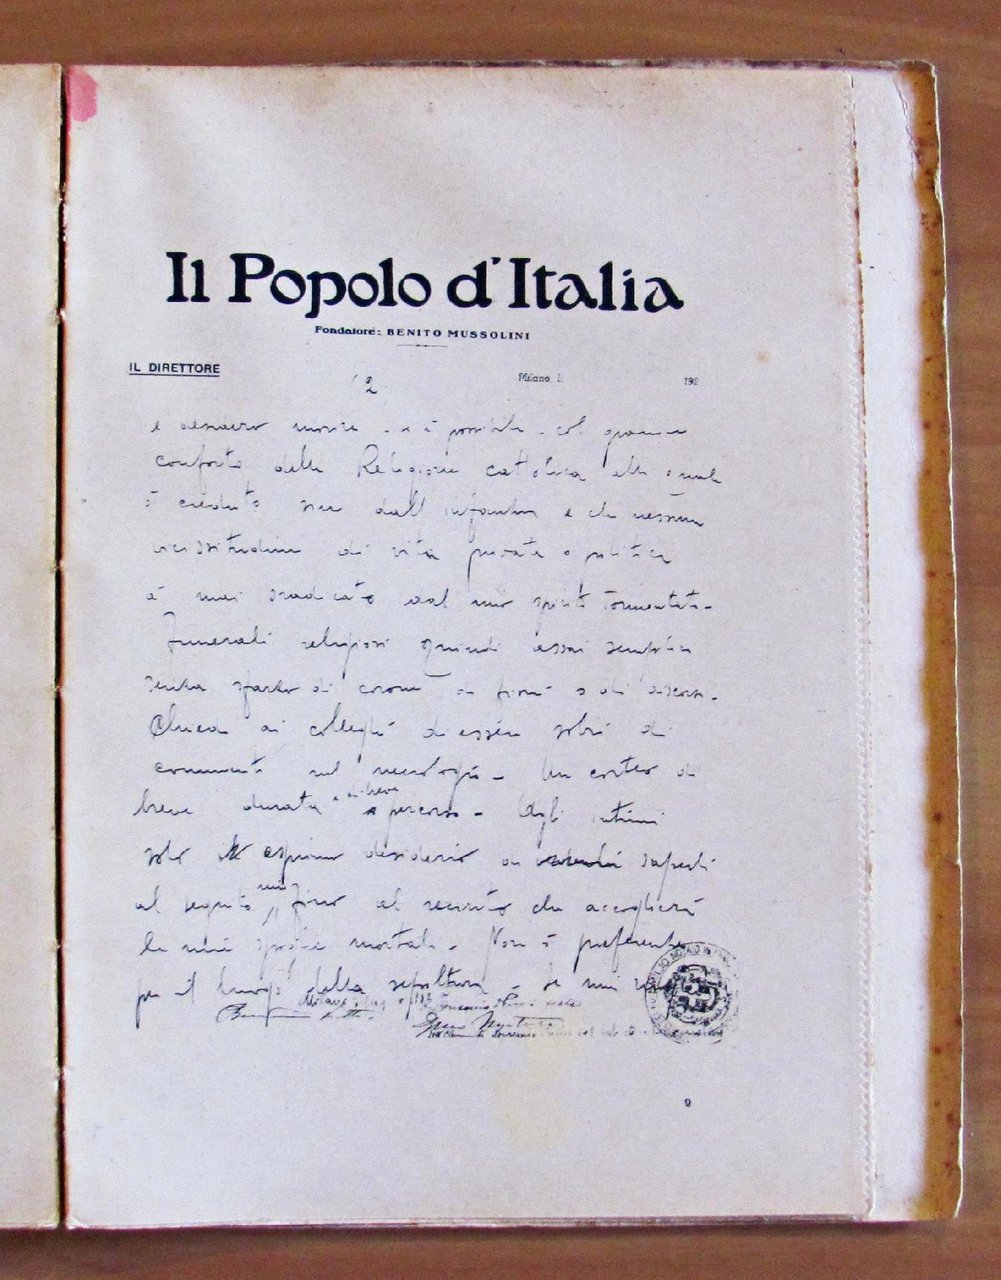 Il Popolo d'Italia
Fondatore: BENITO MUSSOLINI
IL DIRETTORE
Milano, 192
2
e desidero morire - se è possibile - col grande
conforto della Religione cattolica alla quale
ò creduto sin dall'infanzia e che nessuna
vicissitudine di vita privata o politica
à mai sradicato dal mio spirito tormentato -
Funerali religiosi quindi assai semplici
senza sfarzo di corone di fiori o di discorsi -
Chiedo ai colleghi di essere sobri di
commenti nel necrologio - Un corteo di
breve durata e di breve percorso - Agli intimi
solo esprimo desiderio di saperli
al seguito mio fino al recinto che accoglierà
le mie spoglie mortali - Non ò preferenze
per il luogo della sepoltura - Se mi
Milano
NOTAIO IN
9